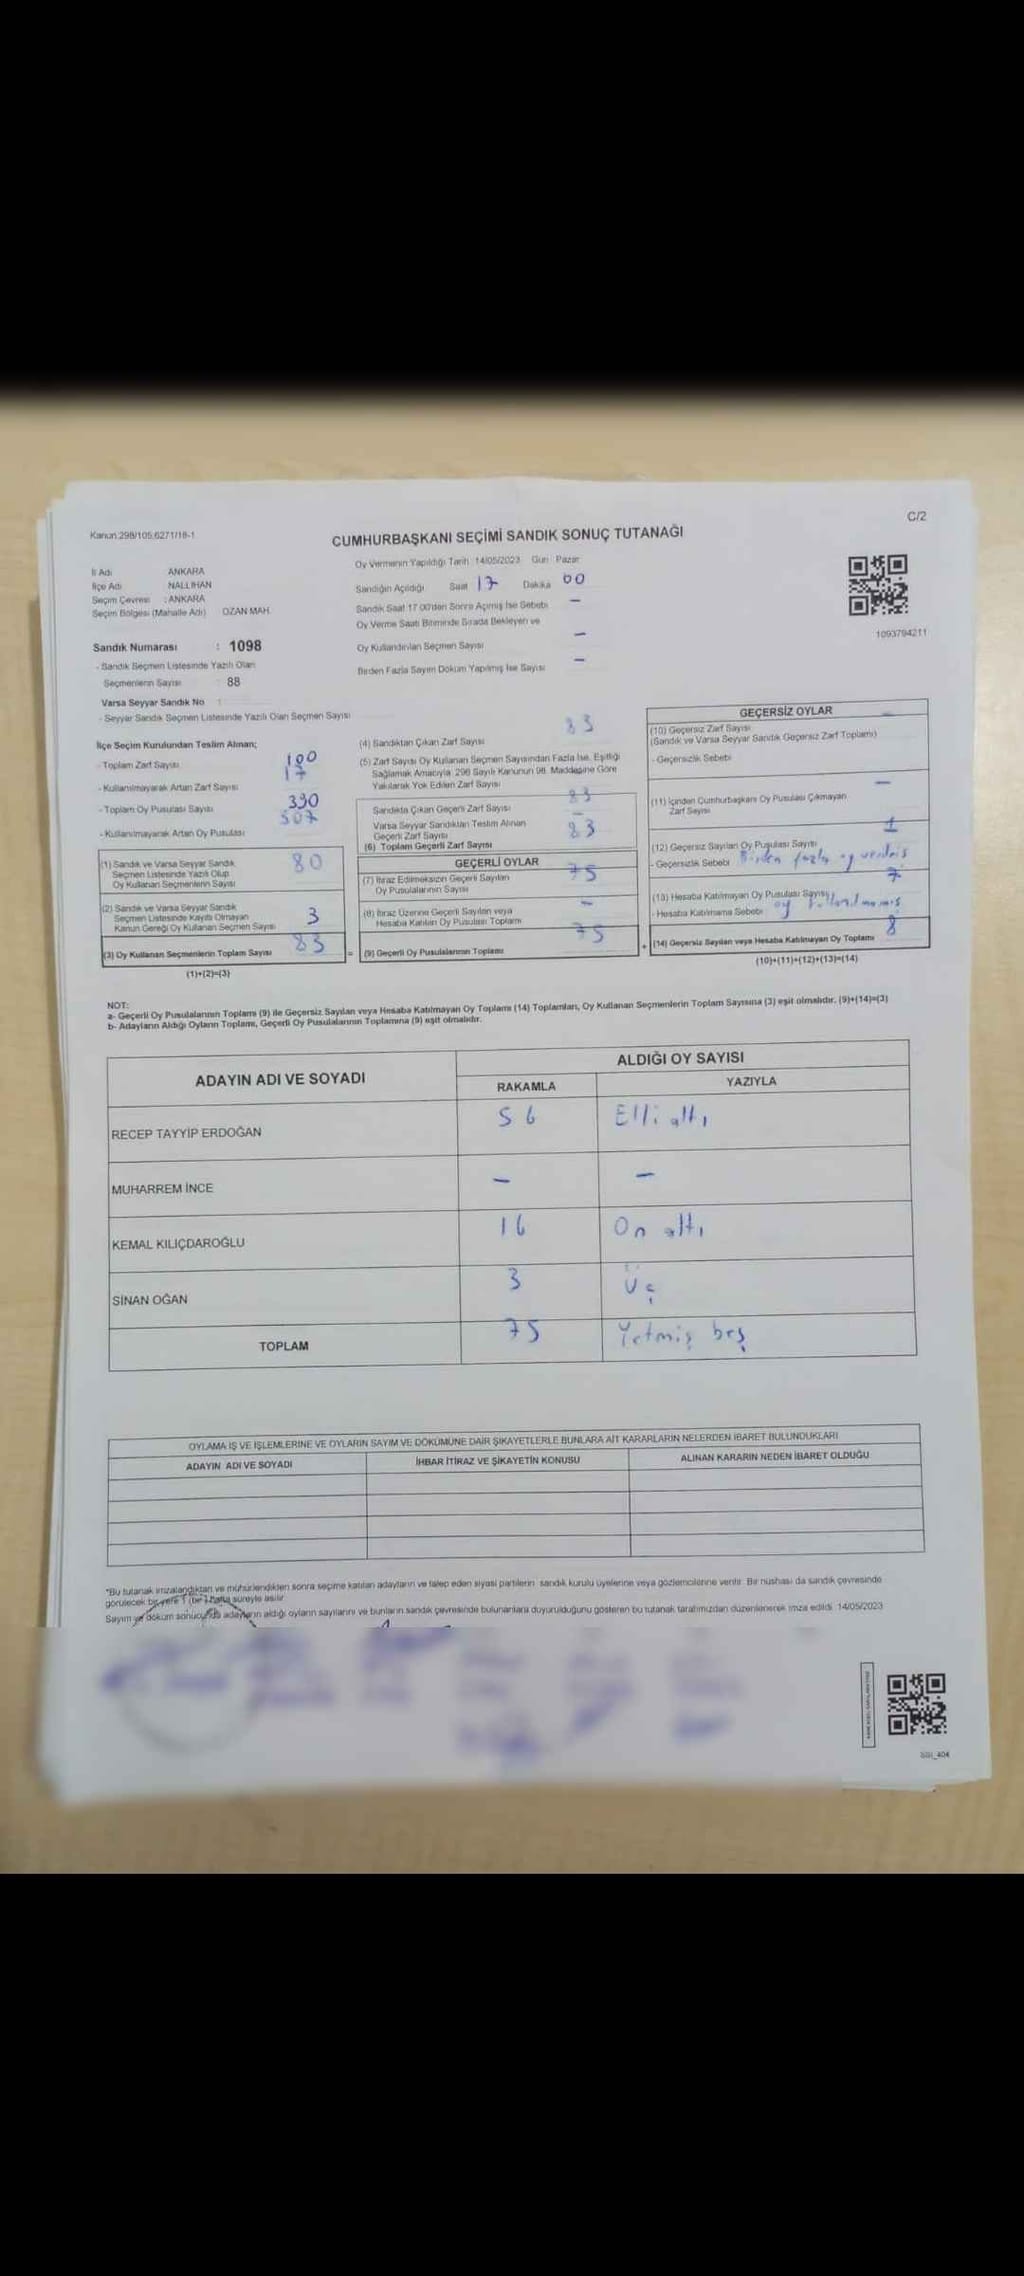 C/2
Kanun.298/105,6271/18-1
CUMHURBAŞKANI SEÇİMİ SANDIK SONUÇ TUTANAĞI
İl Adı ANKARA
İlçe Adı NALLIHAN
Seçim Çevresi : ANKARA
Seçim Bölgesi (Mahalle Adı) OZAN MAH.
Oy Vermenin Yapıldığı Tarih 14/05/2023 Gün : Pazar
Sandığın Açıldığı Saat 17 Dakika 00
Sandık Saat 17.00'den Sonra Açılmış İse Sebebi -
Oy Verme Saati Bitiminde Sırada Bekleyen ve
Oy Kullandırılan Seçmen Sayısı -
Birden Fazla Sayım Döküm Yapılmış İse Sayısı -
1093794211
Sandık Numarası : 1098
- Sandık Seçmen Listesinde Yazılı Olan
Seçmenlerin Sayısı : 88
Varsa Seyyar Sandık No :
- Seyyar Sandık Seçmen Listesinde Yazılı Olan Seçmen Sayısı
İlçe Seçim Kurulundan Teslim Alınan;
- Toplam Zarf Sayısı 100
- Kullanılmayarak Artan Zarf Sayısı 17
- Toplam Oy Pusulası Sayısı 390
- Kullanılmayarak Artan Oy Pusulası 307
(1) Sandık ve Varsa Seyyar Sandık
Seçmen Listesinde Yazılı Olup
Oy Kullanan Seçmenlerin Sayısı 80
(2) Sandık ve Varsa Seyyar Sandık
Seçmen Listesinde Kayıtlı Olmayan
Kanun Gereği Oy Kullanan Seçmen Sayısı 3
(3) Oy Kullanan Seçmenlerin Toplam Sayısı 83
(1)+(2)=(3)
(4) Sandıktan Çıkan Zarf Sayısı 83
(5) Zarf Sayısı Oy Kullanan Seçmen Sayısından Fazla İse, Eşitliği
Sağlamak Amacıyla 298 Sayılı Kanunun 98. Maddesine Göre
Yakılarak Yok Edilen Zarf Sayısı
Sandıkta Çıkan Geçerli Zarf Sayısı 83
Varsa Seyyar Sandıktan Teslim Alınan
Geçerli Zarf Sayısı -
(6) Toplam Geçerli Zarf Sayısı 83
GEÇERLİ OYLAR
(7) İtiraz Edilmeksizin Geçerli Sayılan
Oy Pusulalarının Sayısı 75
(8) İtiraz Üzerine Geçerli Sayılan veya
Hesaba Katılan Oy Pusulası Toplamı -
= (9) Geçerli Oy Pusulalarının Toplamı 75
GEÇERSİZ OYLAR
(10) Geçersiz Zarf Sayısı -
(Sandık ve Varsa Seyyar Sandık Geçersiz Zarf Toplamı)
- Geçersizlik Sebebi
(11) İçinden Cumhurbaşkanı Oy Pusulası Çıkmayan
Zarf Sayısı -
(12) Geçersiz Sayılan Oy Pusulası Sayısı 1
- Geçersizlik Sebebi Birden fazla oy verilmiş
(13) Hesaba Katılmayan Oy Pusulası Sayısı 7
- Hesaba Katılmama Sebebi oy kullanılmamış
+ (14) Geçersiz Sayılan veya Hesaba Katılmayan Oy Toplamı 8
(10)+(11)+(12)+(13)=(14)
NOT:
a- Geçerli Oy Pusulalarının Toplamı (9) ile Geçersiz Sayılan veya Hesaba Katılmayan Oy Toplamı (14) Toplamları, Oy Kullanan Seçmenlerin Toplam Sayısına (3) eşit olmalıdır. (9)+(14)=(3)
b- Adayların Aldığı Oyların Toplamı, Geçerli Oy Pusulalarının Toplamına (9) eşit olmalıdır.
ADAYIN ADI VE SOYADI ALDIĞI OY SAYISI
RAKAMLA YAZIYLA
RECEP TAYYİP ERDOĞAN 56 Elli altı
MUHARREM İNCE - -
KEMAL KILIÇDAROĞLU 16 On altı
SİNAN OĞAN 3 Üç
TOPLAM 75 Yetmiş beş
OYLAMA İŞ VE İŞLEMLERİNE VE OYLARIN SAYIM VE DÖKÜMÜNE DAİR ŞİKAYETLERLE BUNLARA AİT KARARLARIN NELERDEN İBARET BULUNDUKLARI
ADAYIN ADI VE SOYADI İHBAR İTİRAZ VE ŞİKAYETİN KONUSU ALINAN KARARIN NEDEN İBARET OLDUĞU
*Bu tutanak imzalandıktan ve mühürlendikten sonra seçime katılan adayların ve talep eden siyasi partilerin sandık kurulu üyelerine veya gözlemcilerine verilir. Bir nüshası da sandık çevresinde
görülecek bir yere 1 (bir) hafta süreyle asılır.
Sayım ve döküm sonucunda adayların aldığı oyların sayılarını ve bunların sandık çevresinde bulunanlara duyurulduğunu gösteren bu tutanak tarafımızdan düzenlenerek imza edildi. 14/05/2023